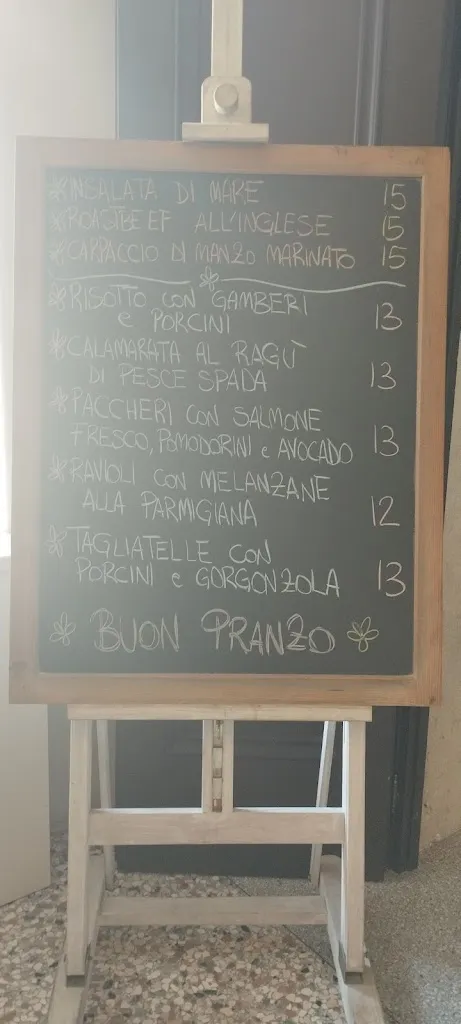 INSALATA DI MARE 15
ROASTBEEF ALL'INGLESE 15
CARPACCIO DI MANZO MARINATO 15
RISOTTO CON GAMBERI
e PORCINI 13
CALAMARATA AL RAGÙ
DI PESCE SPADA 13
PACCHERI CON SALMONE
FRESCO, POMODORINI e AVOCADO 13
RAVIOLI CON MELANZANE
ALLA PARMIGIANA 12
TAGLIATELLE CON
PORCINI e GORGONZOLA 13
BUON PRANZO